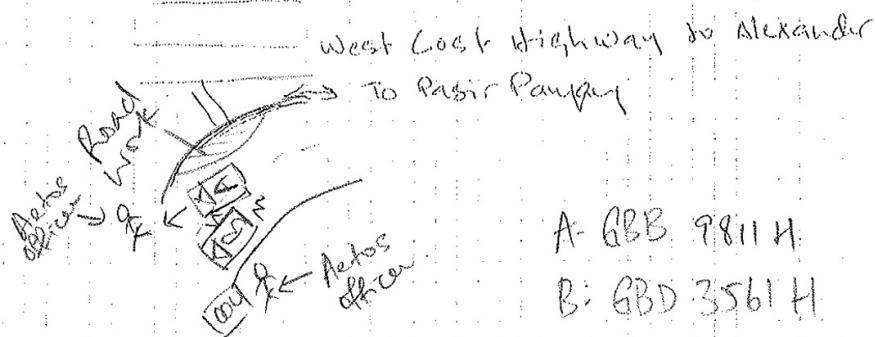 West Cost Highway to Alexander
To Pasir Panjang
Road
Work
Aetos
officer
A
B
Aetos
officer
A- GBB 9811 H
B: GBD 3561 H